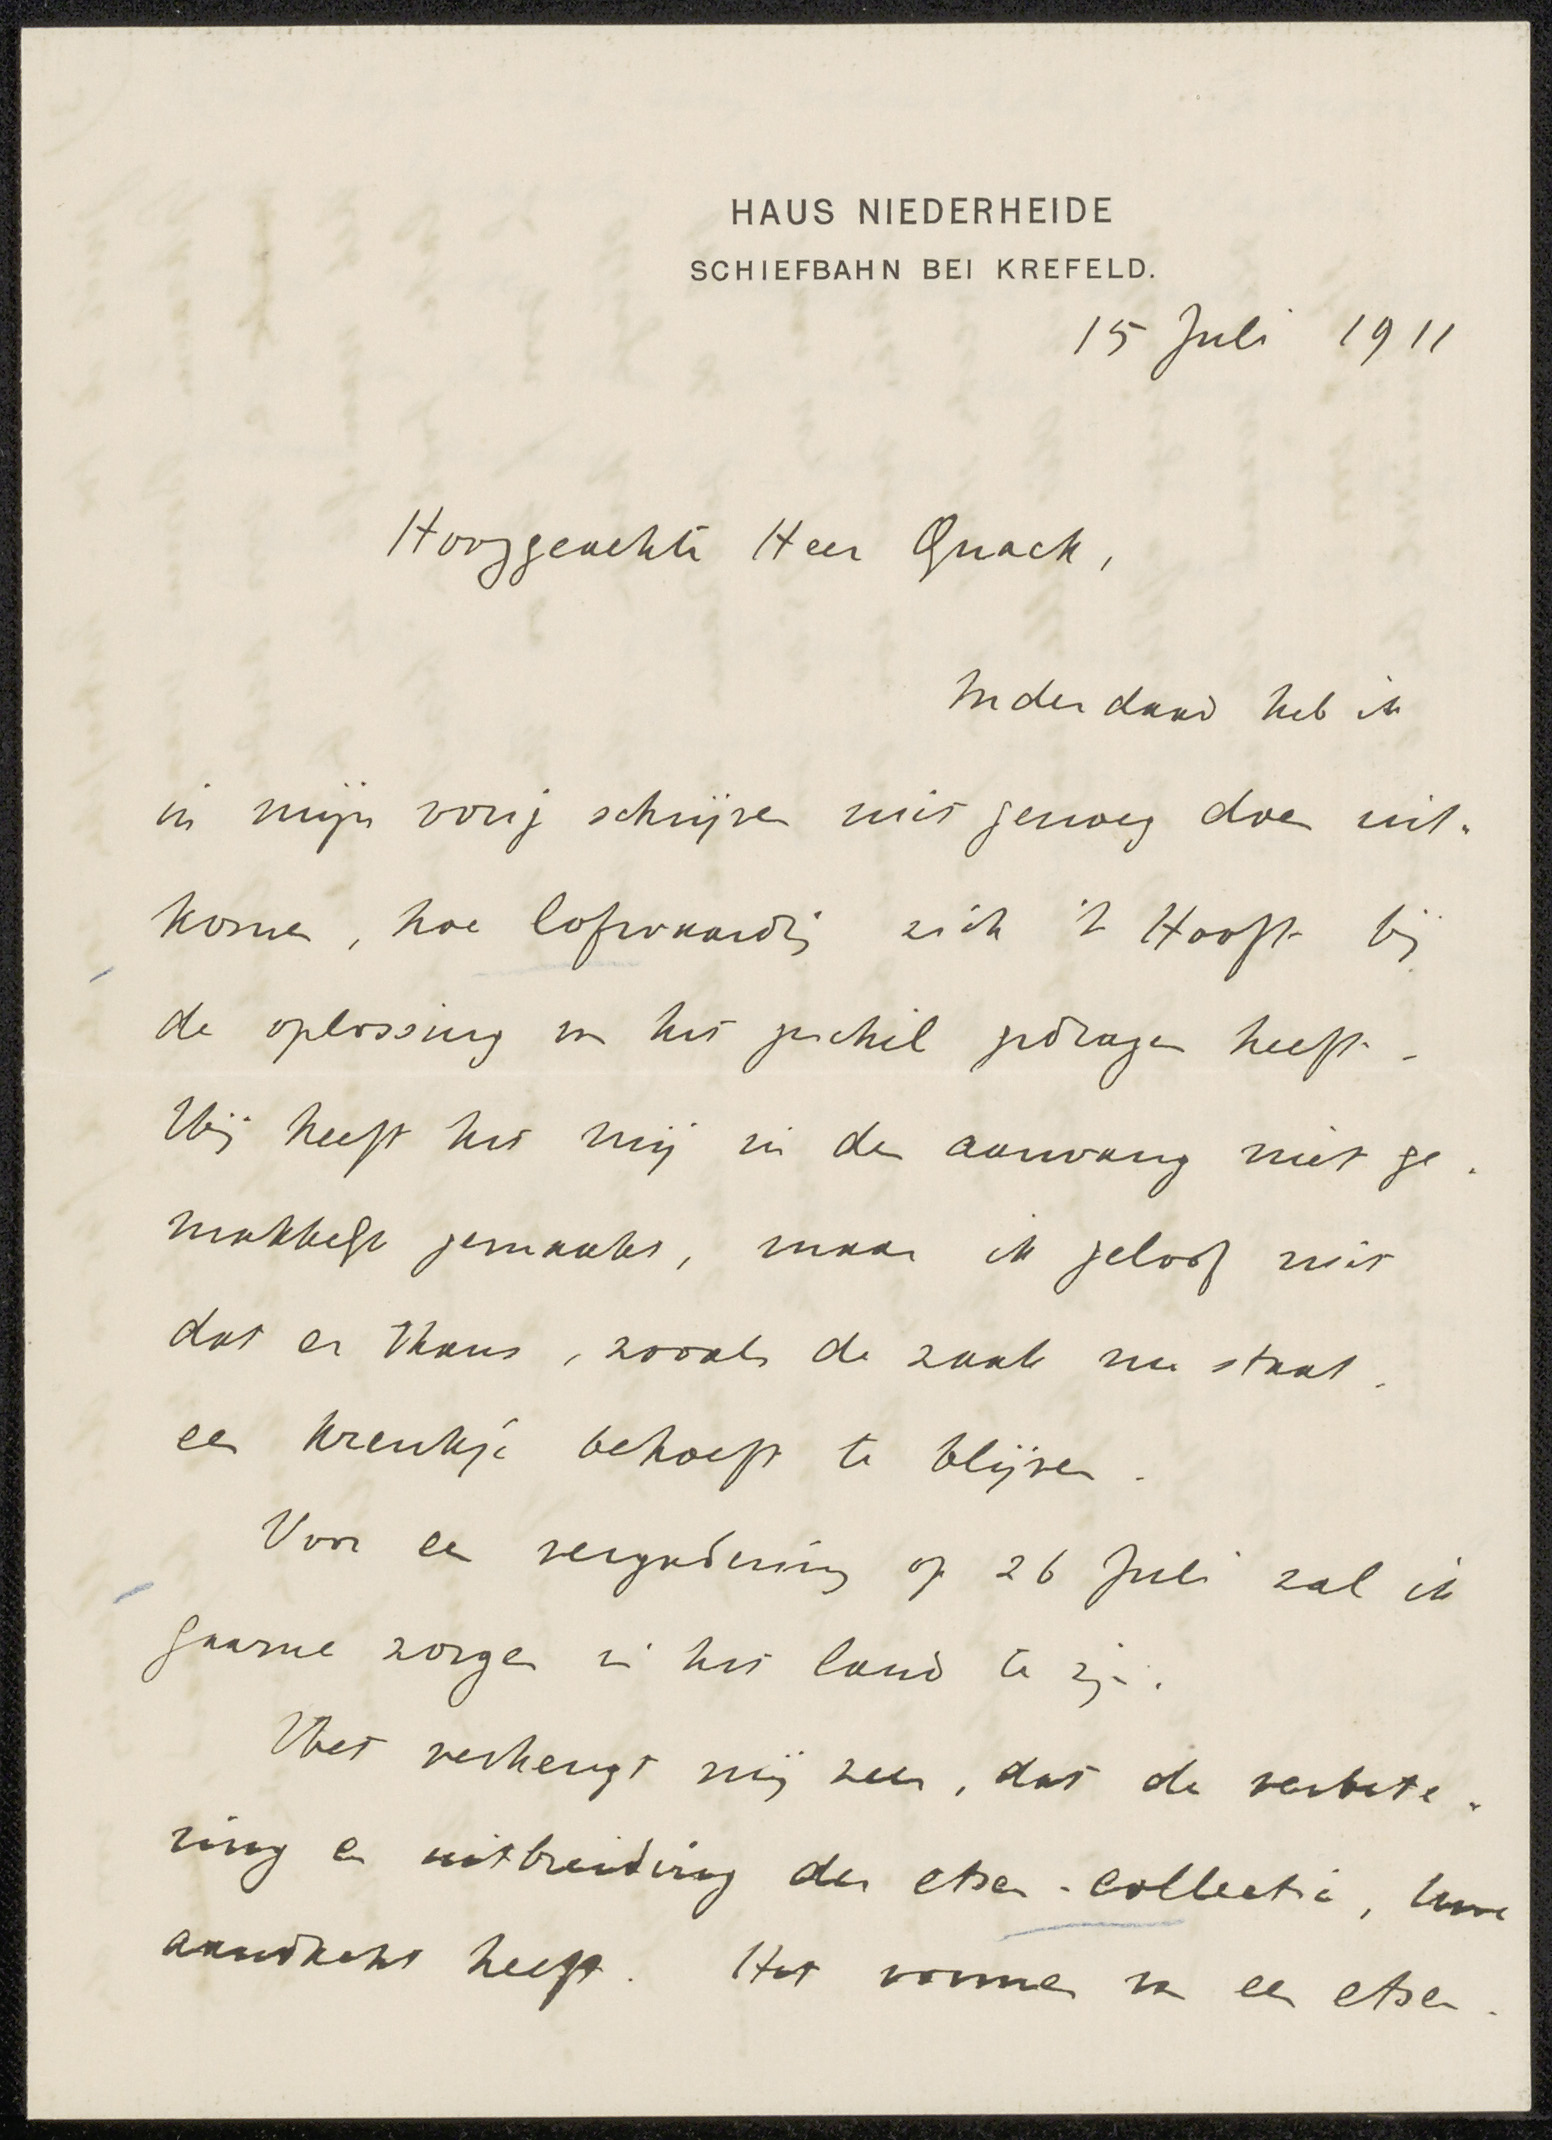 HAUS NIEDERHEIDE
SCHIEFBAHN BEI KREFELD.
15 Juli 1911
Hooggeachte Heer Quack,
Inderdaad heb ik
in mijn vorig schrijven niet genoeg doen uit-
komen, hoe lofwaardig zich 't Hooft bij
de oplossing van het geschil gedragen heeft.
Hij heeft het mij in den aanvang niet ge-
makkelijk gemaakt, maar ik geloof niet
dat er thans, zooals de zaak nu staat,
een krenkje behoeft te blijven.
Voor een vergadering op 26 Juli zal ik
gaarne zorgen in het land te zijn.
Het verheugt mij zeer, dat de verbete-
ring en uitbreiding der etsen-collectie, Uwe
aandacht heeft. Het vormen van een etsen-